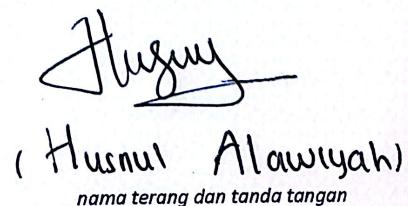 ( Husnul Alawiyah)
nama terang dan tanda tangan